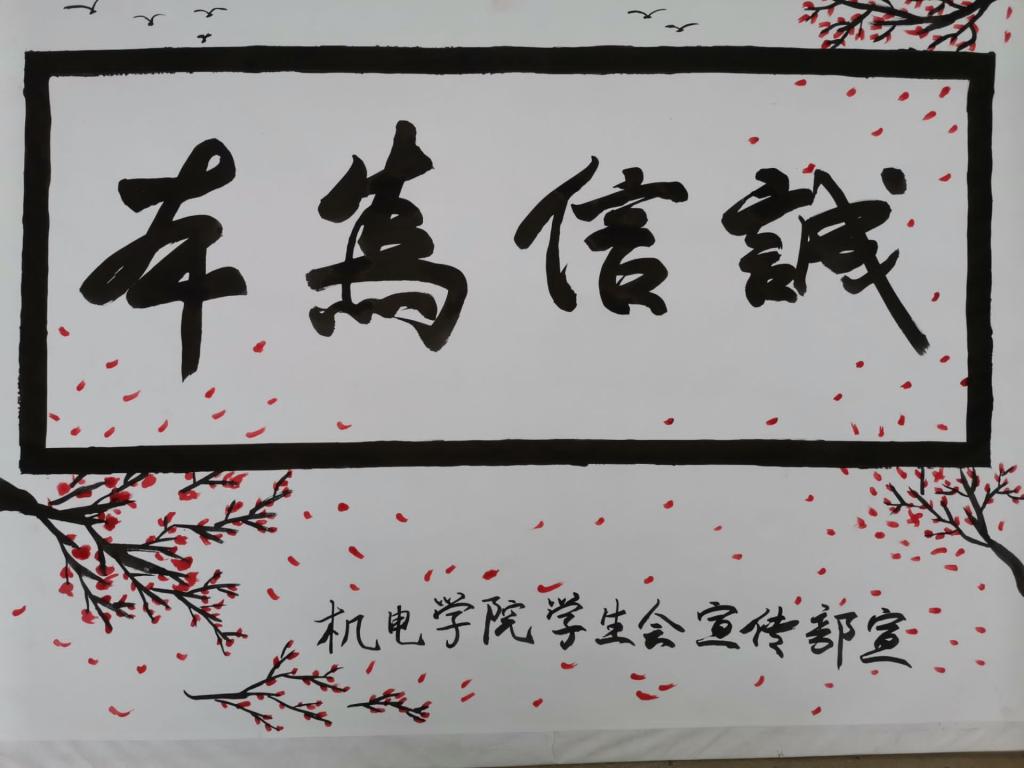 誠信為本
机电学院学生会宣传部宣